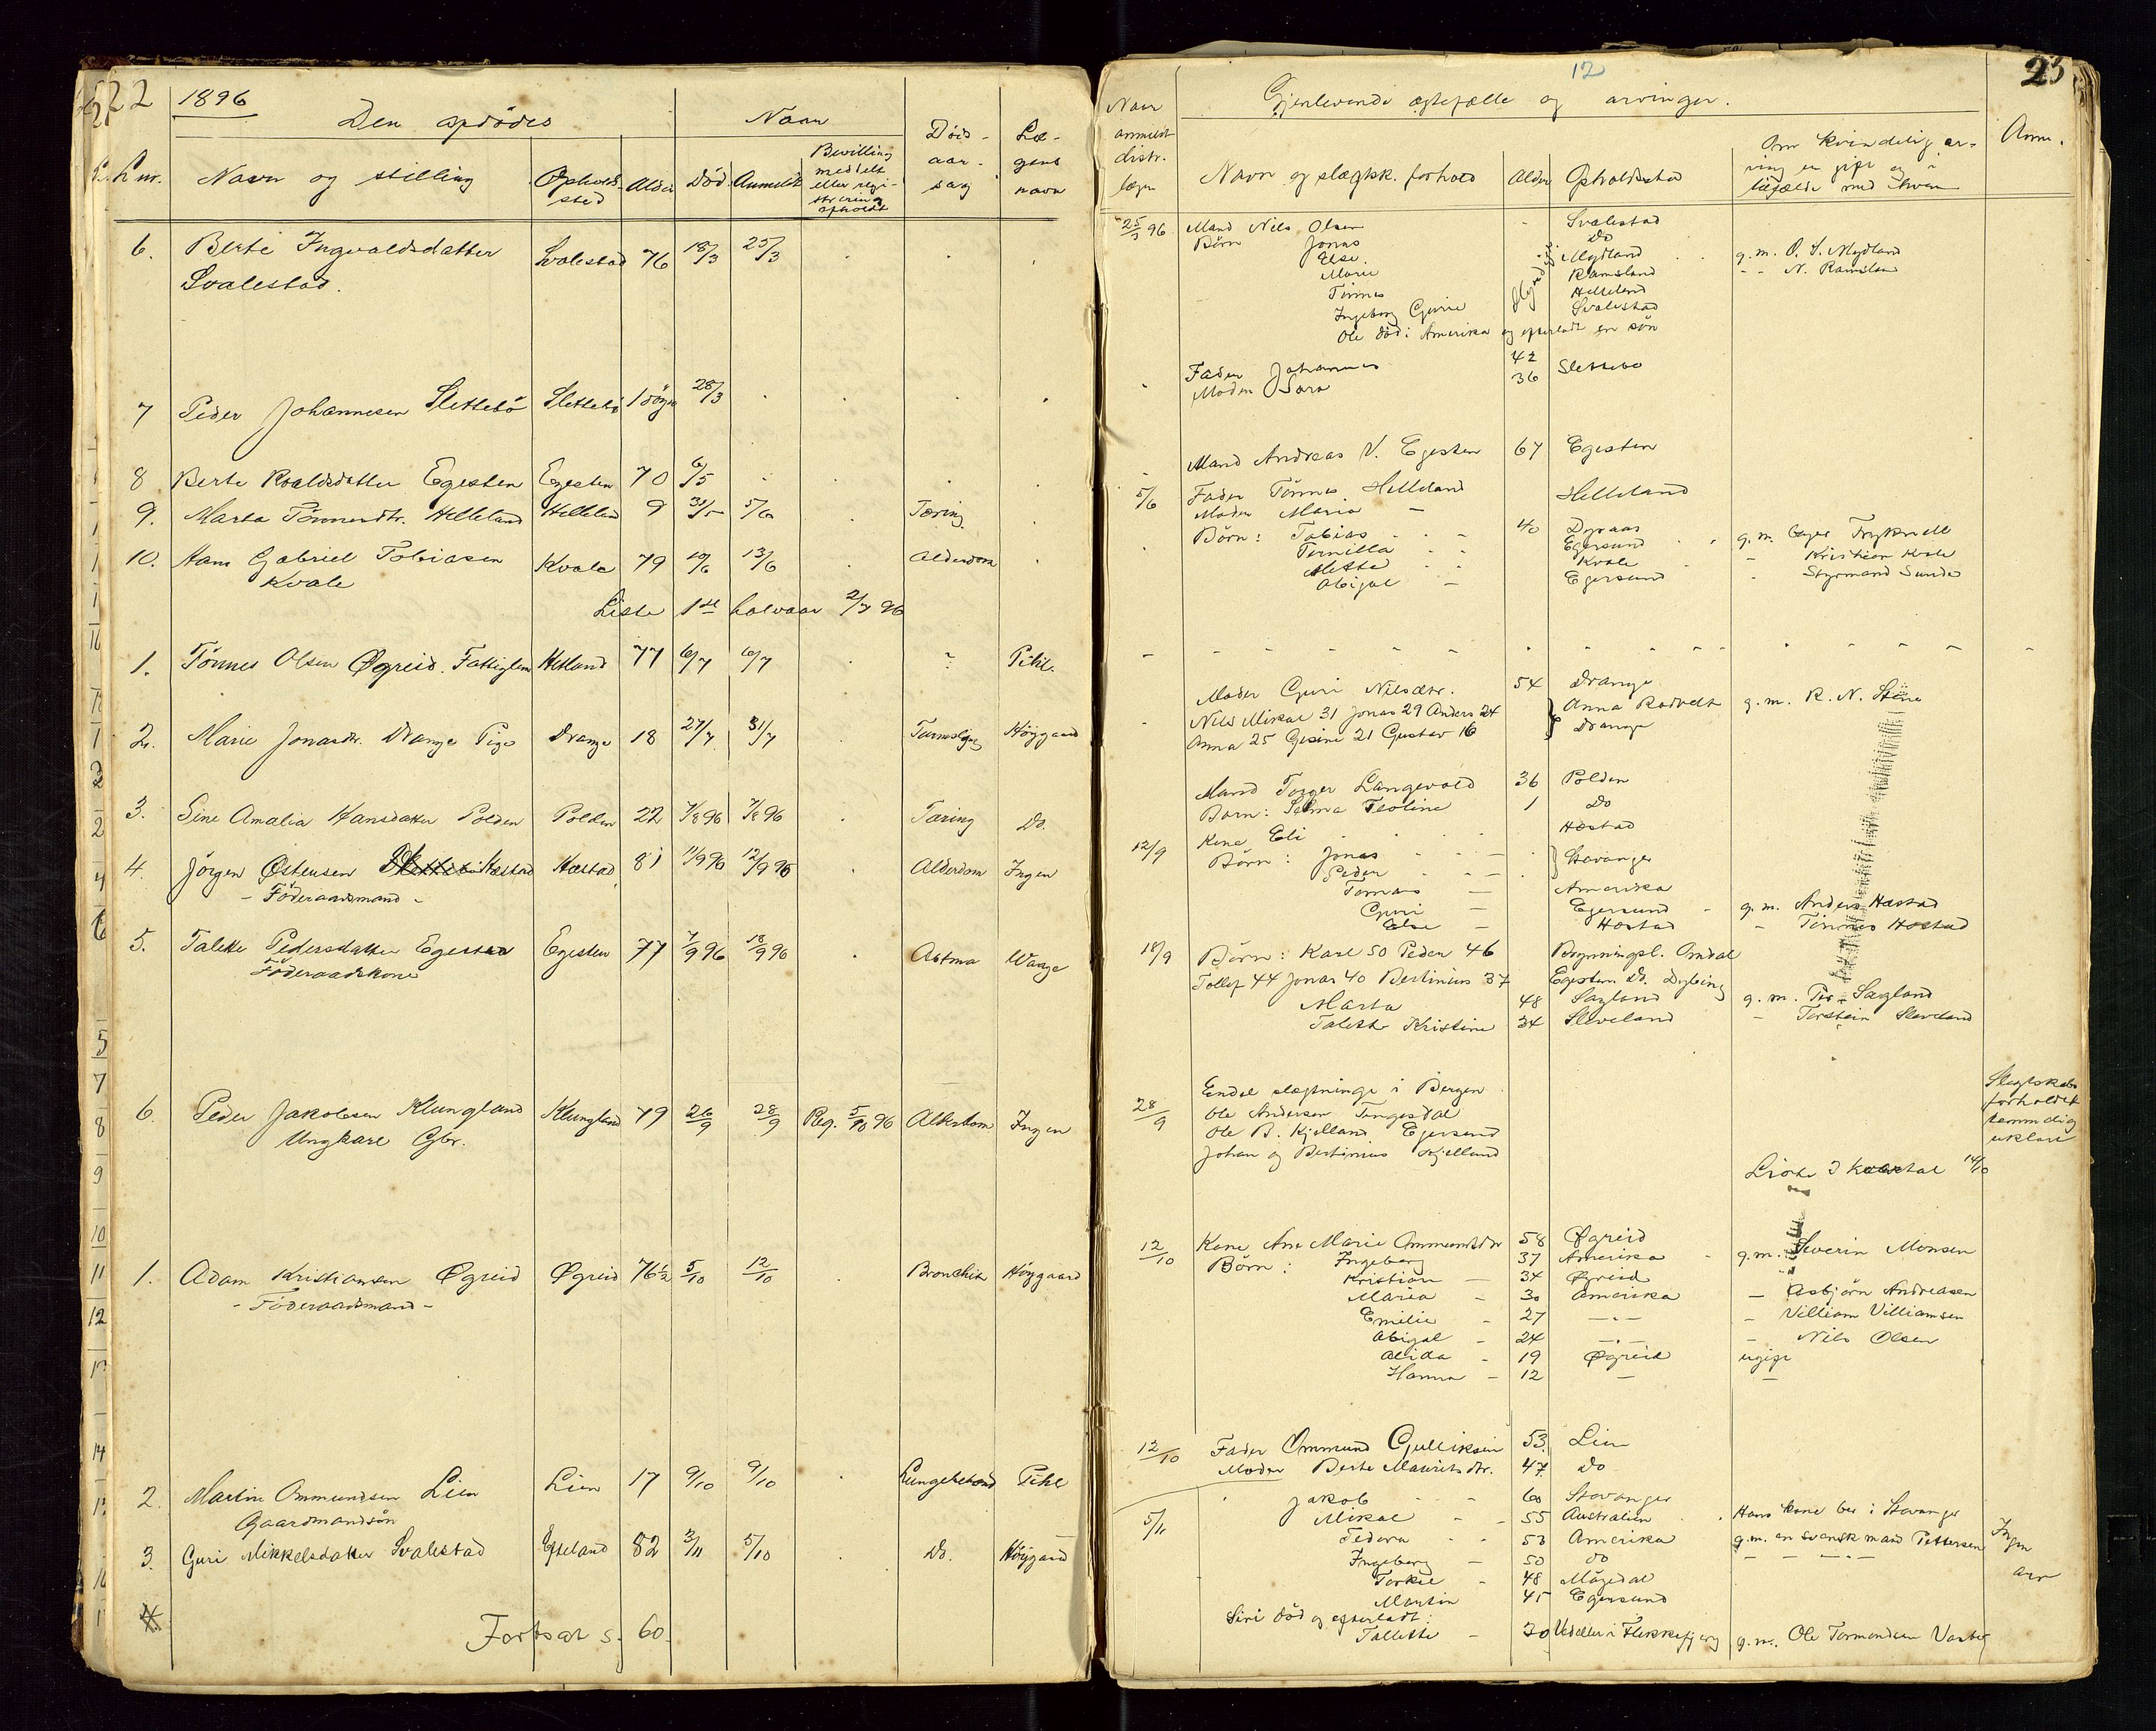 22
1896
Den afdödes
Naar
L. nr.
Navn og stilling
Opholdssted
Alder
Död
Anmeldt
Bevilling
meddelt
eller regi-
strering
afholdt
Döds-
aar-
sag
Læ-
gens
navn
6. Berte Ingvaldsdatter Svalestad 76 18/3 25/3
Svalestad.
7 Peder Johannesen Slettebö Slettebö 1 dögn 28/3
8 Berte Roaldsdatter Egesten Egesten 70 6/5
9. Marta Tönnesdtr. Helleland Helleland 9 31/5 5/6 Tæring
10. Hans Gabriel Tobiasen Kvale 79 10/6 13/6 Alderdom
Kvale
Liste 1ste halvaar 2/7 96
1. Tönnes Olsen Øgreid. Fattiglem Hetland 77 6/7 6/7 Pihl.
2. Marie Jonasdtr. Drange Pige Drange 18 27/7 31/7 Höygaard
3. Sine Amalia Hansdatter Polden Polden 22 7/8 96 7/8 96 Tæring Do.
4. Jörgen Østensen Hæstad Hæstad 81 11/9 96 12/9 96 Alderdom Ingen
- Föderaadsmand -
5. Talette Pedersdatter Egesten Egesten 77 7/9 96 18/9 96 Astma Waage
Föderaadskone
6. Peder Jakobsen Klungland Klungland 79 26/9 28/9 Reg. 5/10 96 Alderdom Ingen
Ungkarl Gbr.
1. Adam Kristiansen Øgreid Øgreid 76 1/2 5/10 12/10 Bronchit Höygaard
- Föderaadsmand -
2. Martin Ommundsen Lien Lien 17 9/10 9/10 Pihl
Gaardmandsön
3. Guri Mikkelsdatter Svalestad Efteland 82 3/11 5/10 Do. Höygaard
Fortsat s. 60.
12
23
Naar
anmeldt
distr.
lægn
Gjenlevende ægtefælle og arvinger.
Navn og slægtsk. forhold
Alder
Opholdssted
Om kvindelig ar-
ving er gift og i
tilfælde med hvem
Anm.
25/3 96 Mand Nils Olsen - Svalestad
Börn Jonas Do
Else. Mydland g.m. O. S. Mydland
Marie Ramsland - - N. Ramsland
Tönnes Helleland
Ingeborg Gurie Svalestad
Ole död i Amerika og efterladt en sön
Fader Johannes 42 Slettebö
Moder Sara 36
Mand Andreas V. Egesten 67 Egesten
5/6 Fader Tönnes Helleland Helleland
Moder Maria -
Börn: Tobias 40 Dyraas
Pernilla Egersund g.m.
Mette Kvale - Kristian Kvale
Abigal - Egersund - Styrmand Sunde
Moder Guri Nilsdtr. 54 Drange
Nils Mikal 31 Jonas 29 Anders 24 Anna Rodvelt g.m. R. N.
Anna 25 Gesine 21 Gustav 16 Drange
Mand Torger Langevold 36 Polden
Barn: Selma Teoline 1 Do
12/9 Kone Eli Hæstad
Börn: Jonas Stavanger
Peder
Tomas - Amerika
Guri - Egersund - g.m. Anders Hæstad
Else - Hæstad - Tönnes Hæstad
18/9 Börn: Karl 50 Peder 46 Omdal
Tollef 44 Jonas 40 Bertinius 37 Egesten Do. Dybing
Marta 48 Sagland g.m. Per Sagland
Talette Kristine 34 Sleveland - Torstein Sleveland
28/9 Endel slægtninge i Bergen
Ole Andersen Tengesdal
Ole B. Kjelland Egersund
Johan og Bertinius Kjelland
Slegtskabs
forholdet
temmelig
uklart
Liste 3 kvartal 14/10
12/10 Kone Ane Marie Ommundsdtr 58 Øgreid
Börn: Ingeborg 37 Amerika - g.m. Severin Monsen
Kristian - 34 Øgreid
Maria - 30 Amerika - Asbjörn Andreasen
Emilie - 27 -"- - Villiam Villiamsen
Abigal - 24 -"- - Nils Olsen
Alida - 19 Øgreid ugift
Hanna - 12 - -
12/10 Fader Ommund Gulliksen 53. Lien
Moder Berte Mauritsdtr. 47 Do
5/11 Jakob - - 60 Stavanger
Mikal - - 55 Australien Hans kone bor i Stavanger
Pedera - 53 Amerika g.m. en svensk mand Pettersen
Ingeborg - 50 Do - - -"-
Torkil - 48 Mögedal
Martin 45 Egersund
Siri död og efterladt:
Tallette - 30 i Flekkefjord g.m. Ole Tormodsen
Ingen
arv